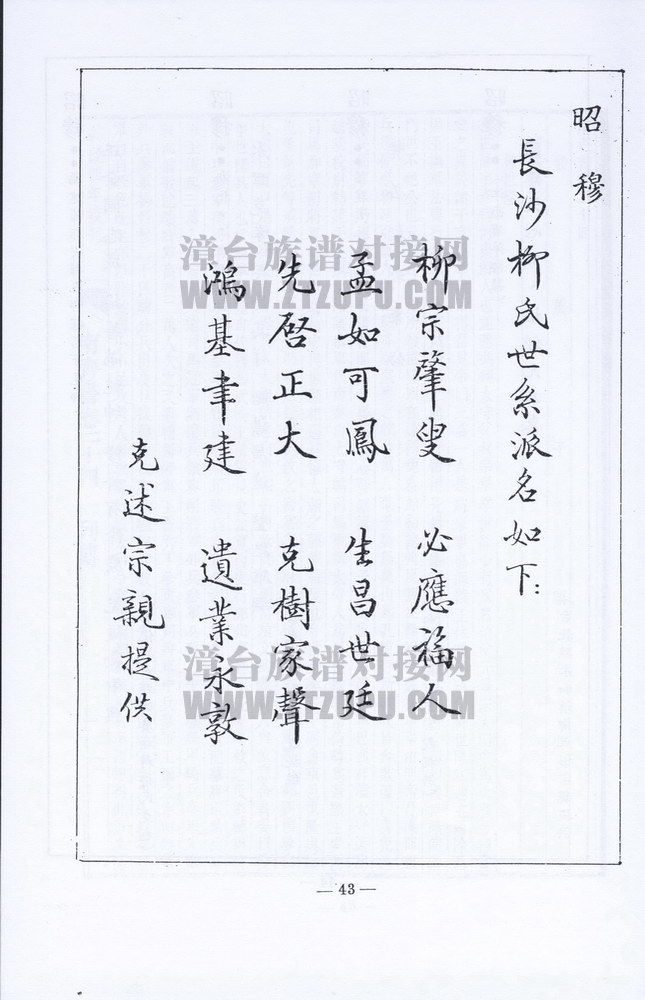 昭穆
長沙柳氏世系派名如下：
柳宗肇叟 必應福人
孟如可鳳 生昌世廷
先啓正大 克樹家聲
鴻基聿建 遺業永敦
克述宗親提供
漳台族谱对接网
WWW.ZTZUPU.COM
漳台族谱对接网
WWW.ZTZUPU.COM
— 43 —